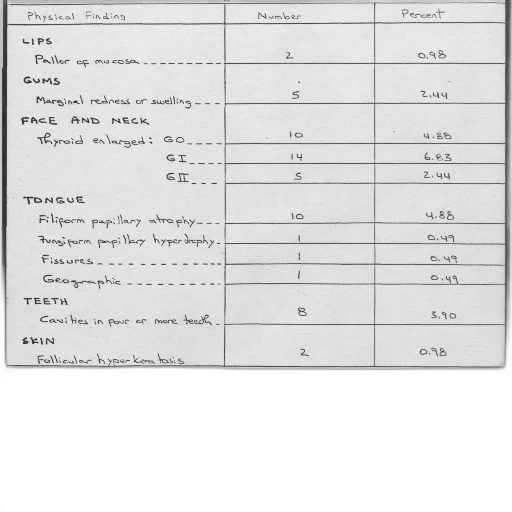 Physical Finding Number Percent
LIPS
Pallor of mucosa 2 0.98
GUMS
Marginal redness or swelling 5 2.44
FACE AND NECK
Thyroid enlarged: GO 10 4.88
GI 14 6.83
GII 5 2.44
TONGUE
Filiform papillary atrophy 10 4.88
Fungiform papillary hypertrophy 1 0.49
Fissures 1 0.49
Geographic 1 0.49
TEETH
Cavities in four or more teeth 8 3.90
SKIN
Follicular hyperkeratosis 2 0.98